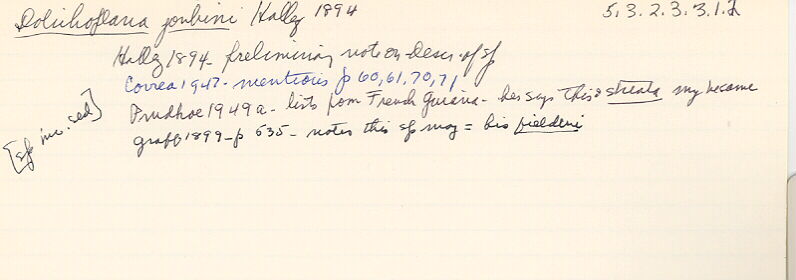 Dolichoplana joubini Hallez 1894 5.3.2.3.3.1.2
Hallez 1894- preliminary note on Descr. of sp
Correa 1947- mentions p 60,61,70,71
Prudhoe 1949a- lists from French Guiana- he says this & striata may become
[sp inc. sed]
Graff 1899- p 535- notes this sp may = his fieldeni